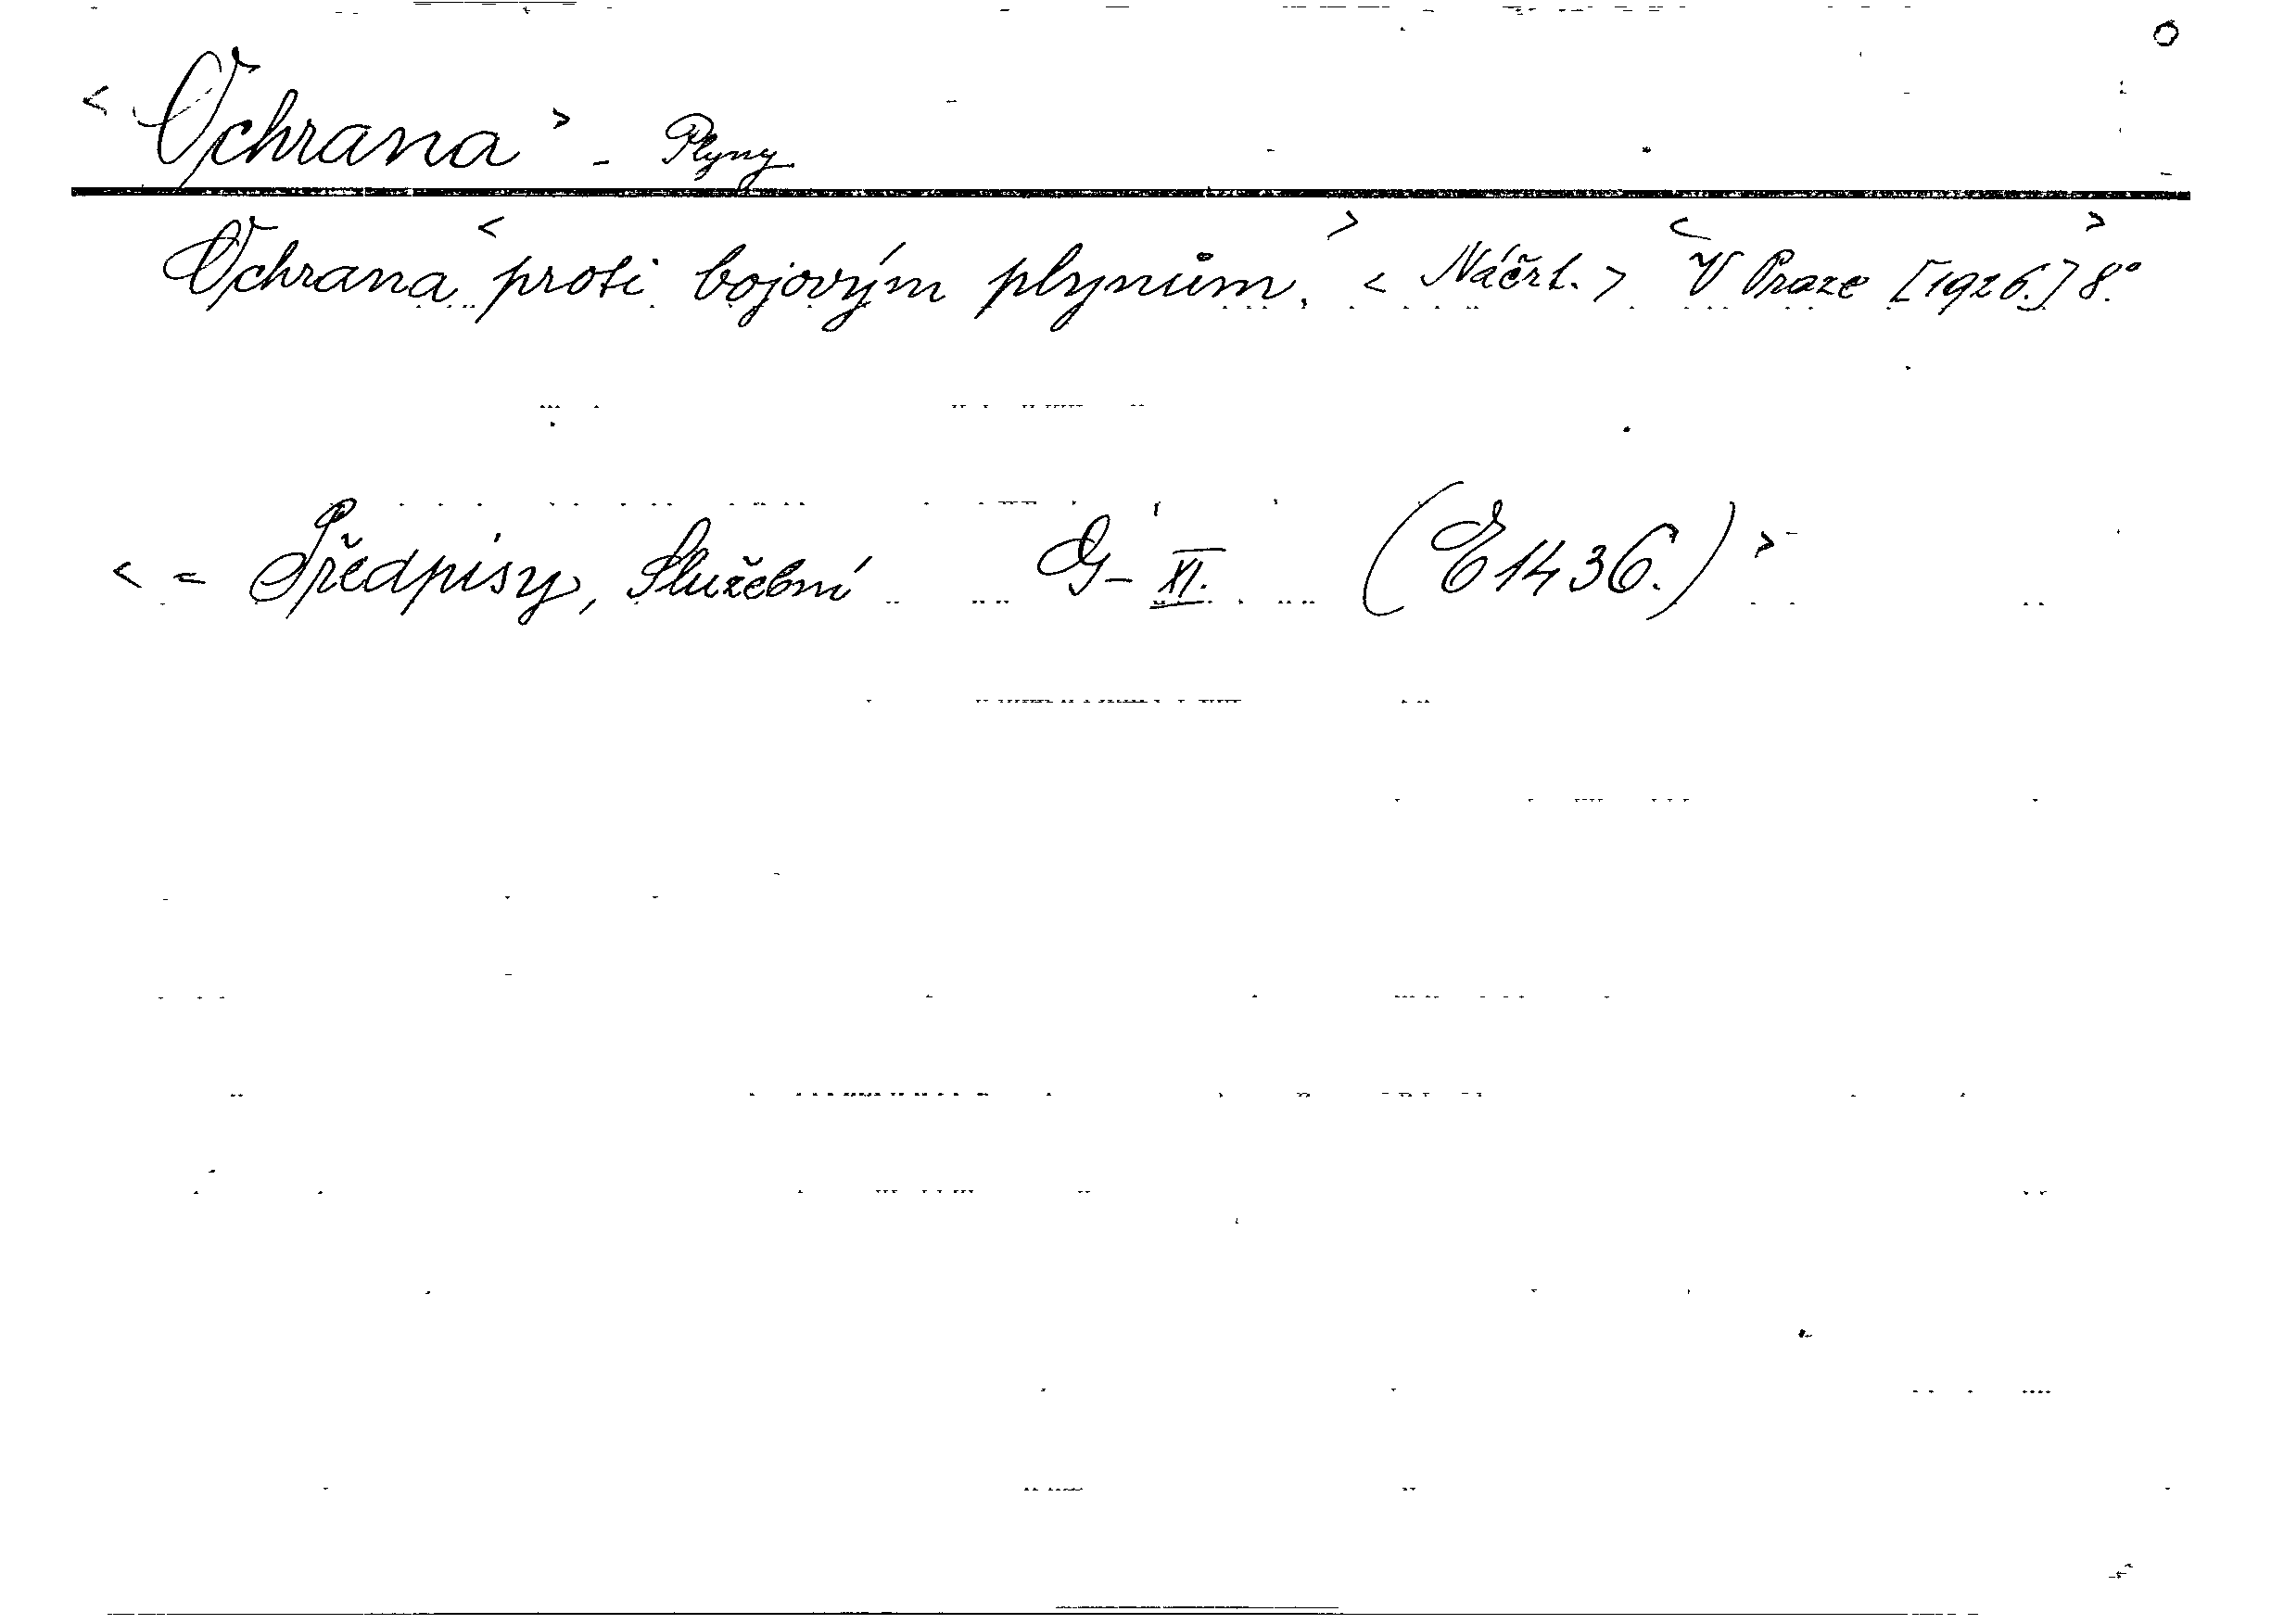 < Ochrana > - Plyny
Ochrana < proti bojovým plynům. > < Náčrt. > < V Praze [1926.] > 8.°
< = Předpisy, Služební G-XI. (E 1436.) >